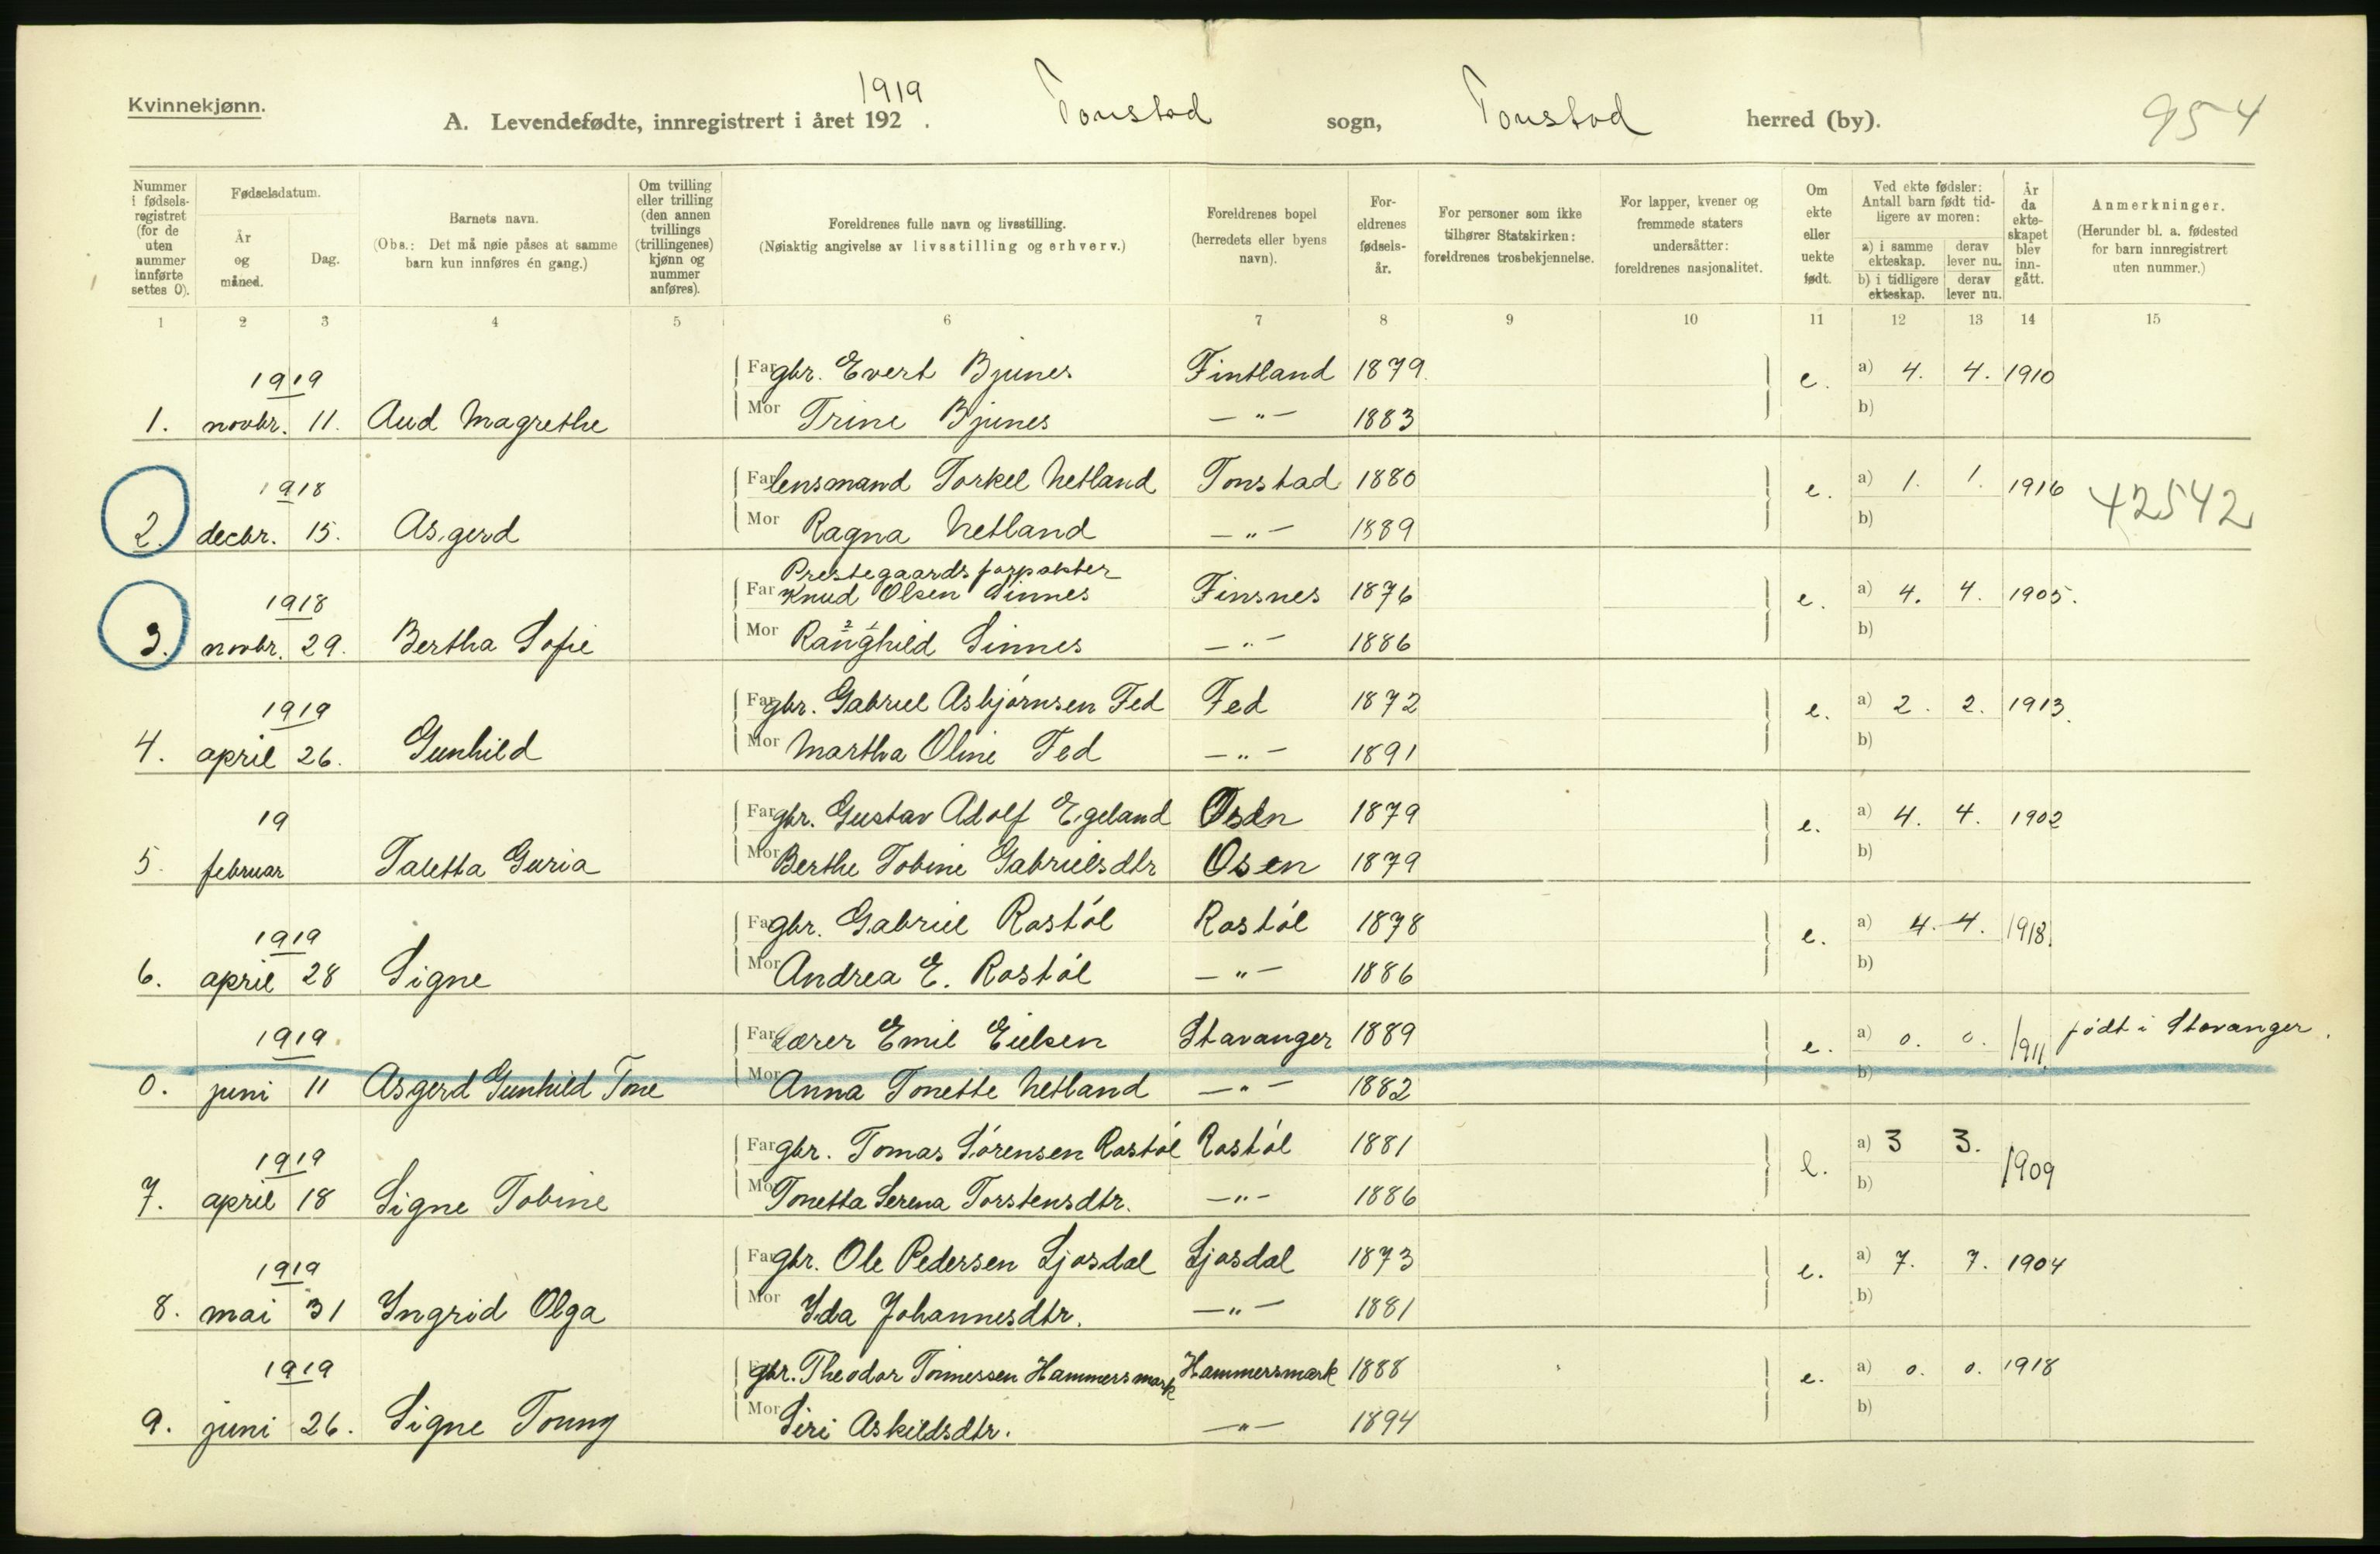 1919
Kvinnekjønn.
A. Levendefødte, innregistrert i året 192 . Tonstad sogn, Tonstad herred (by).
954
Nummer i fødselsregistret (for de uten nummer innførte settes 0).
Fødselsdatum.
År og måned.
Dag.
Barnets navn.
(Obs.: Det må nøie påses at samme barn kun innføres én gang.)
Om tvilling eller trilling (den annen tvillings (trillingenes) kjønn og nummer anføres).
Foreldrenes fulle navn og livsstilling.
(Nøiaktig angivelse av livsstilling og erhverv.)
Foreldrenes bopel (herredets eller byens navn).
Foreldrenes fødselsår.
For personer som ikke tilhører Statskirken: foreldrenes trosbekjennelse.
For lapper, kvener og fremmede staters undersåtter: foreldrenes nasjonalitet.
Om ekte eller uekte født.
Ved ekte fødsler: Antall barn født tidligere av moren:
a) i samme ekteskap. derav lever nu.
b) i tidligere ekteskap. derav lever nu.
År da ekteskapet blev inngått.
Anmerkninger.
(Herunder bl. a. fødested for barn innregistrert uten nummer.)
1 2 3 4 5 6 7 8 9 10 11 12 13 14 15
1919 Far gbr. Evert Bjunes Fintland 1879. e. a) 4. 4. 1910
1. novbr. 11. Aud Magrethe Mor Trine Bjunes — " — 1883 b)
1918 Far lensmand Torkel Netland Tonstad 1880 e. a) 1. 1. 1916 42542
2. decbr. 15. Asgerd Mor Ragna Netland — " — 1889 b)
Prestegaardsforpakter
1918 Far Knud Olsen Sinnes Finsnes 1876 e. a) 4. 4. 1905.
3. novbr. 29. Bertha Sofie Mor Ranghild Sinnes — " — 1886 b)
1919 Far gbr. Gabriel Asbjørnsen Fed Fed 1872 e. a) 2. 2. 1913.
4. april 26. Gunhild Mor Martha Oline Fed — " — 1891 b)
19 Far gbr. Gustav Adolf Egeland Osen 1879 e. a) 4. 4. 1902
5. februar Taletta Guria Mor Berthe Tobine Gabrielsdtr Osen 1879 b)
1919 Far gbr. Gabriel Rostøl Rostøl 1878 e. a) 4. 4. 1918.
6. april 28 Signe Mor Andrea E. Rostøl — " — 1886 b)
1919. Far Lærer Emil Eielsen Stavanger 1889 e. a) 0. 0. 1911. født i Stavanger.
0. juni 11 Asgerd Gunhild Tone Mor Anna Tonette Netland — " — 1882 b)
1919 Far gbr. Tomas Sørensen Rostøl Rostøl 1881 e. a) 3 3. 1909
7. april 18 Signe Tobine Mor Tonetta Serena Torstensdtr. — " — 1886 b)
1919 Far gbr. Ole Pedersen Ljosdal Ljosdal 1873 e. a) 7. 7. 1904
8. mai 31 Yngrid Olga Mor Yda Johannesdtr. — " — 1881 b)
1919 Far gbr. Theodor Tonnessen Hammersmark Hammersmark 1888 e. a) 0. 0. 1918
9. juni 26. Signe Tonny Mor Siri Askildsdtr. — " — 1894 b)